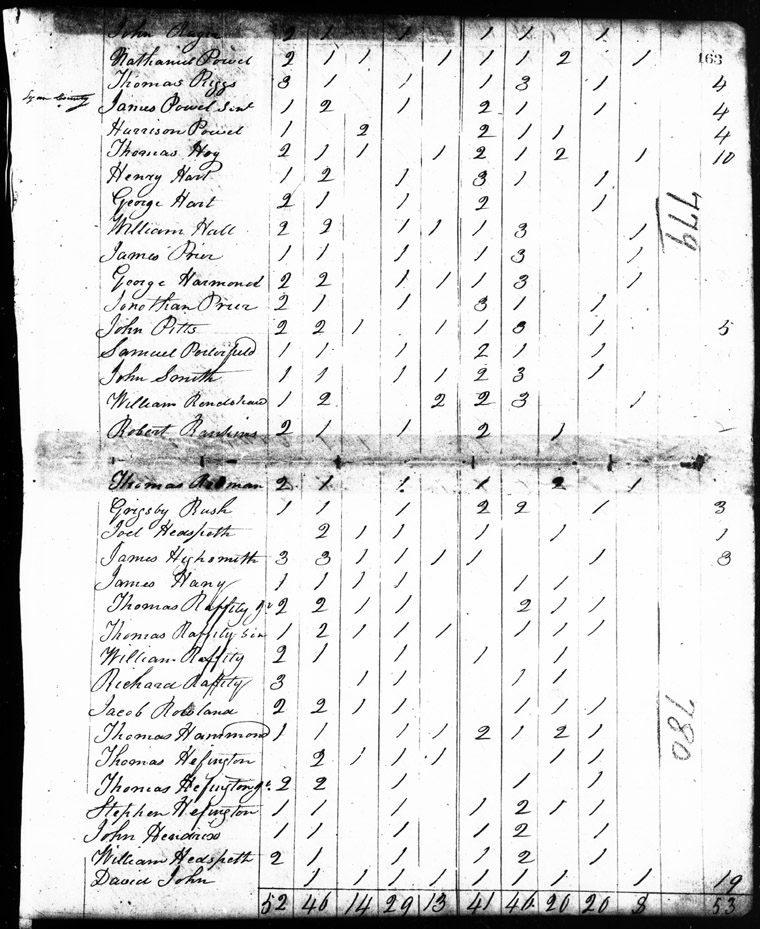 John 2 1 1 1 1 1
Nathaniel Powel 2 1 1 1 1 1 1 2 1
163
Thomas Riggs 3 1 1 1 3 1 4
County James Powel Sinr 1 2 1 2 1 1 4
Harrison Powel 1 2 2 1 1 4
Thomas Hoy 2 1 1 1 2 1 2 1 10
Henry Hart 1 2 1 3 1 1
George Hart 2 1 1 2 1
William Hall 2 2 1 1 1 3 1
779
James Prier 1 1 1 1 3 1
George Harmond 2 2 1 1 1 3 1
Jonothan Prier 2 1 1 3 1 1
John Pitts 2 2 1 1 1 3 1 5
Samuel Porterfield 1 1 1 2 1 1
John Smith 1 1 1 1 2 3 1
William Rendshaw 1 2 2 2 3 1
Robert Rankins 2 1 1 2 1
Thomas Redman 2 1 1 1 2 1
Grigsby Rush 1 1 1 2 2 1 3
Joel Hedspeth 2 1 1 1 1 1
James Hyhsmith 3 3 1 1 1 1 1 3
James Hany 1 1 1 1 1 1
Thomas Raffity Jr 2 2 1 1 2 1 1
Thomas Raffity Sin 1 2 1 1 1 1 1 1
William Raffity 2 1 1 1 1
Richard Raffity 3 1 1 1 1
Jacob Rowland 2 2 1 1 1 1 1
780
Thomas Hammond 1 1 1 1 2 1 2 1
Thomas Hefington 2 1 1 1 1 1
Thomas Hefington Jr. 2 2 1 1 1
Stephen Hefington 1 1 1 1 2 1 1
John Hendrix 1 1 1 1 2 1
William Hedspeth 2 1 1 1 2 1
David John 1 1 1 1 1 1 1 1 19
52 46 14 29 13 41 46 20 20 8 53